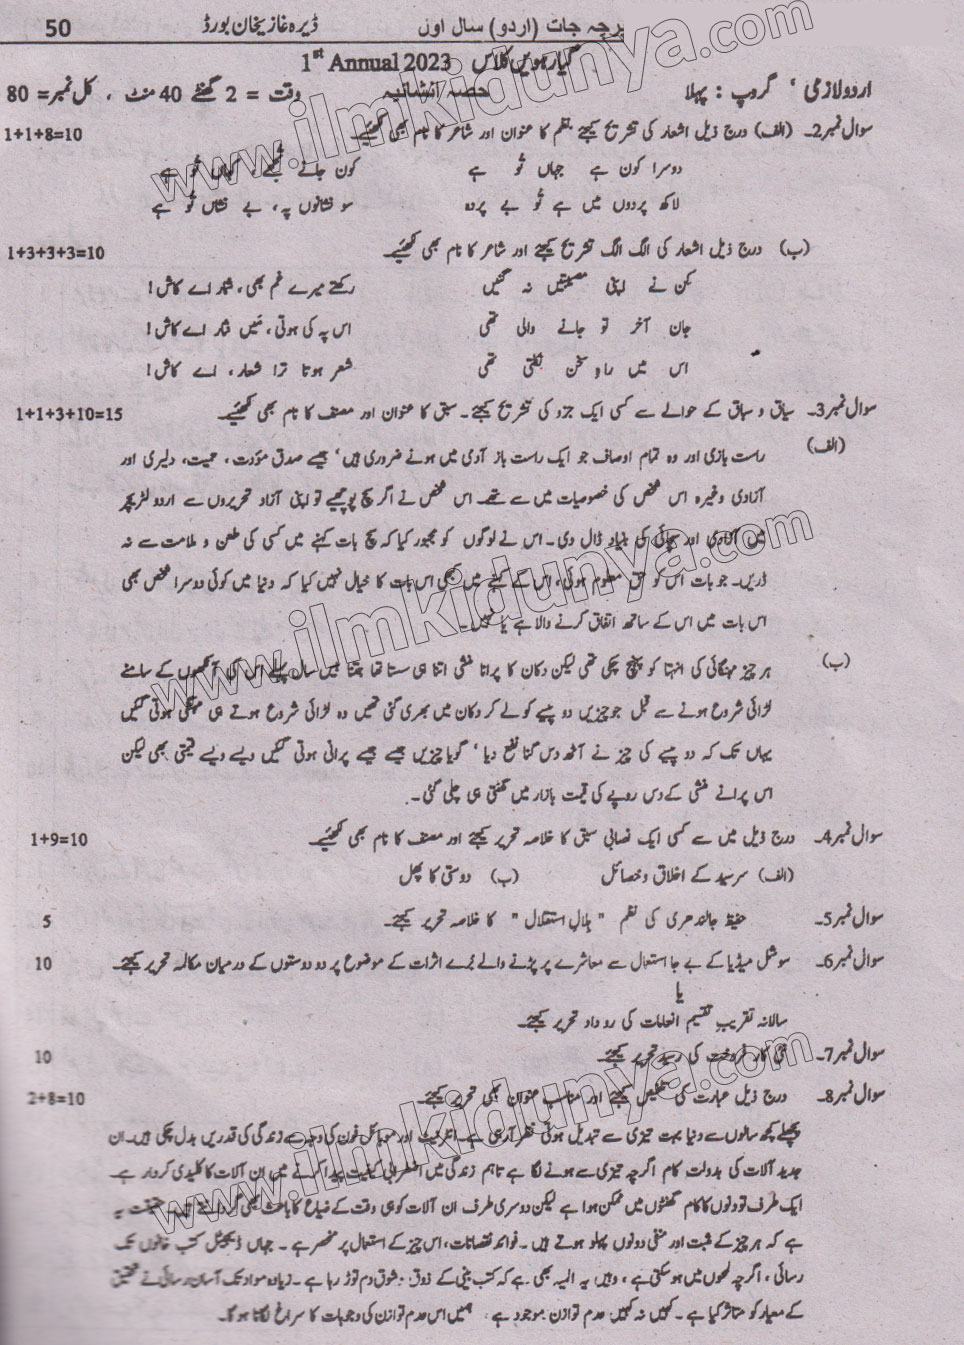 50 ڈیرہ غازیخان بورڈ پرچہ جات (اردو) سال اول
گیارہویں کلاس 1st Annual 2023
اردو لازمی ، گروپ : پہلا حصہ انشائیہ وقت = 2 گھنٹے 40 منٹ ، کل نمبر= 80
سوال نمبر2۔ (الف) درج ذیل اشعار کی تشریح کیجئے نظم کا عنوان اور شاعر کا نام بھی لکھیے۔ 1+1+8=10
دوسرا کون ہے جہاں تُو ہے کون جانے تُجھے ، کہاں تُو ہے
لاکھ پردوں میں ہے تُو بے پردہ سو نشانوں پہ، بے نشاں تُو ہے
(ب) درج ذیل اشعار کی الگ الگ تشریح کیجئے اور شاعر کا نام بھی لکھیے۔ 1+3+3+3=10
کن نے اپنی مصیبتیں نہ گنیں رکھتے میرے غم بھی، شمار اے کاش!
جان آخر تو جانے والی تھی اس پہ کی ہوتی، مَیں نثار اے کاش!
اس میں راہِ سخن نکلتی تھی شعر ہوتا ترا شعار، اے کاش!
سوال نمبر3۔ سیاق و سباق کے حوالے سے کسی ایک جزو کی تشریح کیجئے۔ سبق کا عنوان اور مصنف کا نام بھی لکھیے۔ 1+1+3+10=15
(الف) راست بازی اور وہ تمام اوصاف جو ایک راست باز آدمی میں ہونے ضروری ہیں، جیسے صدق مؤدت، حمیت، دلیری اور
آزادی وغیرہ اس شخص کی خصوصیات میں سے تھے۔ اس شخص نے اگر سچ پوچھیے تو اپنی آزاد تحریروں سے اردو لٹریچر
میں آزادی اور سچائی کی بنیاد ڈال دی۔ اس نے لوگوں کو مجبور کیا کہ سچ بات کہنے میں کسی کی طعن و ملامت سے نہ
ڈریں۔ جو بات اس کو حق معلوم ہوئی، اس کے کہنے میں کبھی اس بات کا خیال نہیں کیا کہ دنیا میں کوئی دوسرا شخص بھی
اس بات میں اس کے ساتھ اتفاق کرنے والا ہے یا نہیں۔
(ب) ہر چیز مہنگائی کی انتہا کو پہنچ چکی تھی لیکن دکان کا پرانا منشی اتنا ہی سستا تھا جتنا بیس سال پہلے اس کی آنکھوں کے سامنے
لڑائی شروع ہونے سے قبل جو چیزیں دو پیسے کو لے کر دکان میں بھری گئی تھیں وہ لڑائی شروع ہوتے ہی مہنگی ہوتی گئیں
یہاں تک کہ دو پیسے کی چیز نے آٹھ دس گنا نفع دیا، گویا چیزیں جیسے جیسے پرانی ہوتی گئیں ویسے ویسے قیمتی بھی لیکن
اس پرانے منشی کے دس روپے کی قیمت بازار میں گھٹتی ہی چلی گئی۔
سوال نمبر4۔ درج ذیل میں سے کسی ایک نصابی سبق کا خلاصہ تحریر کیجئے اور مصنف کا نام بھی لکھیے۔ 1+9=10
(الف) سرسید کے اخلاق وخصائل (ب) دوستی کا پھل
سوال نمبر5۔ حفیظ جالندھری کی نظم "ہلالِ استقلال" کا خلاصہ تحریر کیجئے۔ 5
سوال نمبر6۔ سوشل میڈیا کے بے جا استعمال سے معاشرے پر پڑنے والے بُرے اثرات کے موضوع پر دو دوستوں کے درمیان مکالمہ تحریر کیجئے۔ 10
یا
سالانہ تقریبِ تقسیم انعامات کی روداد تحریر کیجئے۔
سوال نمبر7۔ نئی کار فروخت کی رسید تحریر کیجئے۔ 10
سوال نمبر8۔ درج ذیل عبارت کی تلخیص کیجئے اور مناسب عنوان بھی تحریر کیجئے۔ 2+8=10
پچھلے کچھ سالوں سے دنیا بہت تیزی سے تبدیل ہوتی نظر آ رہی ہے۔ انٹرنیٹ اور موبائل فون کی وجہ سے زندگی کی قدریں بدل چکی ہیں۔ ان
جدید آلات کی بدولت کام اگرچہ تیزی سے ہونے لگا ہے تاہم زندگی میں اضطرابی کیفیت پیدا کرنے میں ان آلات کا کلیدی کردار ہے۔
ایک طرف تو دنوں کا کام گھنٹوں میں ممکن ہوا ہے لیکن دوسری طرف ان آلات کو ہی وقت کے ضیاع کا باعث بھی گردانتے ہیں۔ حقیقت یہ
ہے کہ ہر چیز کے مثبت اور منفی دونوں پہلو ہوتے ہیں۔ فوائد نقصانات، اس چیز کے استعمال پر منحصر ہے۔ جہاں ڈیجیٹل کتب خانوں تک
رسائی، اگرچہ لمحوں میں ہو سکتی ہے، وہیں یہ المیہ بھی ہے کہ کتب بینی کے ذوق و شوق دم توڑ رہا ہے۔ زیادہ مواد تک آسان رسائی نے تحقیق
کے معیار کو متاثر کیا ہے۔ کہیں نہ کہیں عدم توازن موجود ہے، ہمیں اس عدم توازن کی وجوہات کا سراغ لگانا ہو گا۔
www.ilmkidunya.com
www.ilmkidunya.com
www.ilmkidunya.com